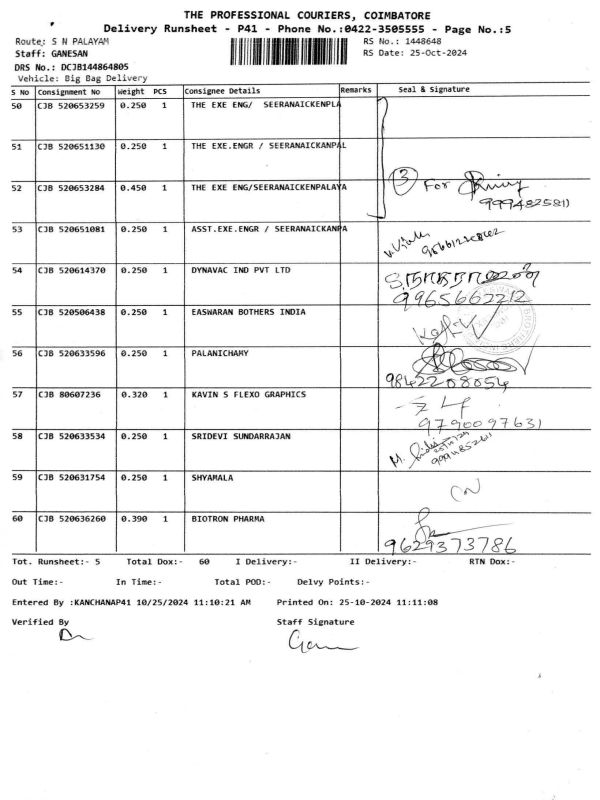 THE PROFESSIONAL COURIERS, COIMBATORE
Delivery Runsheet - P41 - Phone No.:0422-3505555 - Page No.:5
Route: S N PALAYAM RS No.: 1448648
Staff: GANESAN RS Date: 25-Oct-2024
DRS No.: DCJB144864805
Vehicle: Big Bag Delivery
S No Consignment No Weight PCS Consignee Details Remarks Seal & Signature
50 CJB 520653259 0.250 1 THE EXE ENG/ SEERANAICKENPLA
51 CJB 520651130 0.250 1 THE EXE.ENGR / SEERANAICKANPAL
52 CJB 520653284 0.450 1 THE EXE ENG/SEERANAICKENPALAYA 3 For
9994825811
53 CJB 520651081 0.250 1 ASST.EXE.ENGR / SEERANAICKANPA
54 CJB 520614370 0.250 1 DYNAVAC IND PVT LTD
9965662212
55 CJB 520506438 0.250 1 EASWARAN BOTHERS INDIA
56 CJB 520633596 0.250 1 PALANICHAMY
9842208054
57 CJB 80607236 0.320 1 KAVIN S FLEXO GRAPHICS
9790097631
58 CJB 520633534 0.250 1 SRIDEVI SUNDARRAJAN
59 CJB 520631754 0.250 1 SHYAMALA
60 CJB 520636260 0.390 1 BIOTRON PHARMA
9629373786
Tot. Runsheet:- 5 Total Dox:- 60 I Delivery:- II Delivery:- RTN Dox:-
Out Time:- In Time:- Total POD:- Delvy Points:-
Entered By :KANCHANAP41 10/25/2024 11:10:21 AM Printed On: 25-10-2024 11:11:08
Verified By Staff Signature